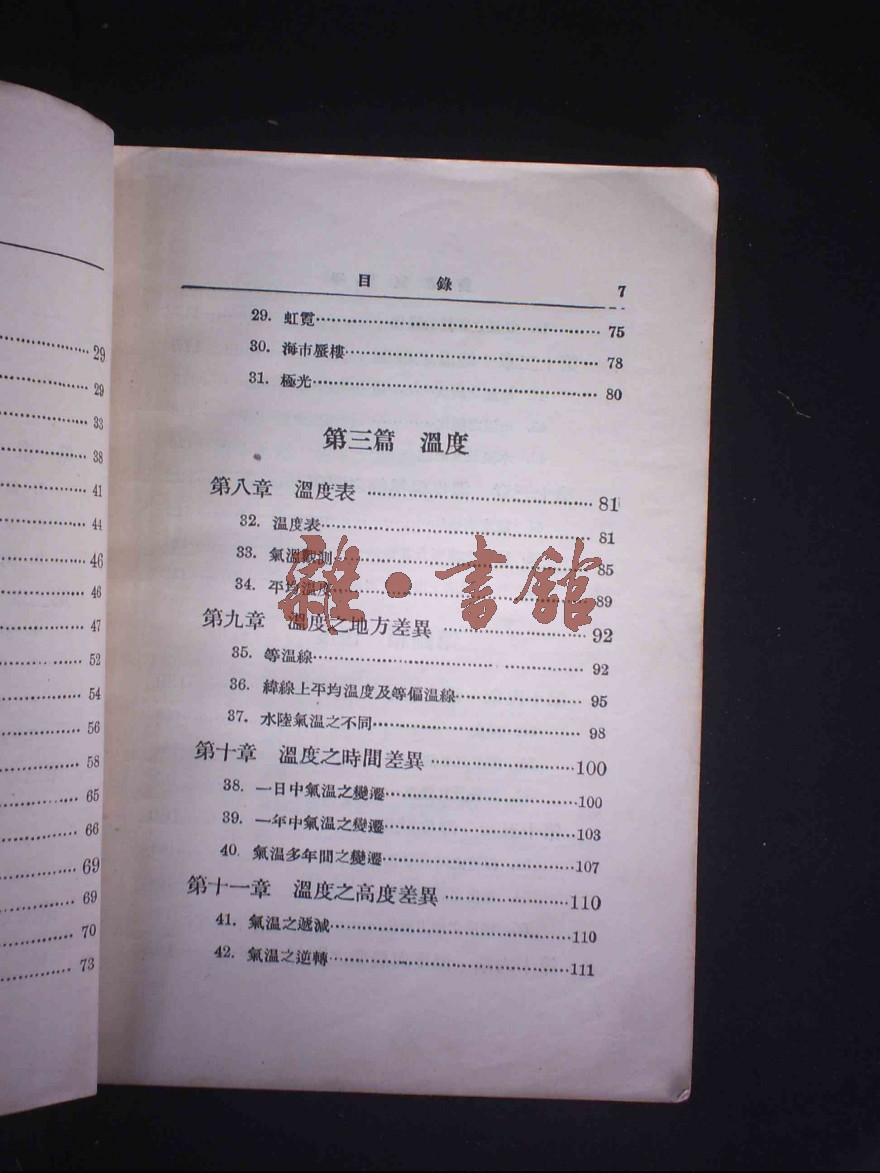 29
29
33
38
41
44
46
46
47
52
54
56
58
65
66
69
69
70
73
目 錄 7
29. 虹霓 75
30. 海市蜃樓 78
31. 極光 80
第三篇 溫度
第八章 溫度表 81
32. 溫度表 81
33. 氣溫觀測 85
34. 平均溫度 89
雜·書館
第九章 溫度之地方差異 92
35. 等温線 92
36. 緯線上平均温度及等偏温線 95
37. 水陸氣温之不同 98
第十章 溫度之時間差異 100
38. 一日中氣温之變遷 100
39. 一年中氣温之變遷 103
40. 氣温多年間之變遷 107
第十一章 溫度之高度差異 110
41. 氣温之遞減 110
42. 氣温之逆轉 111